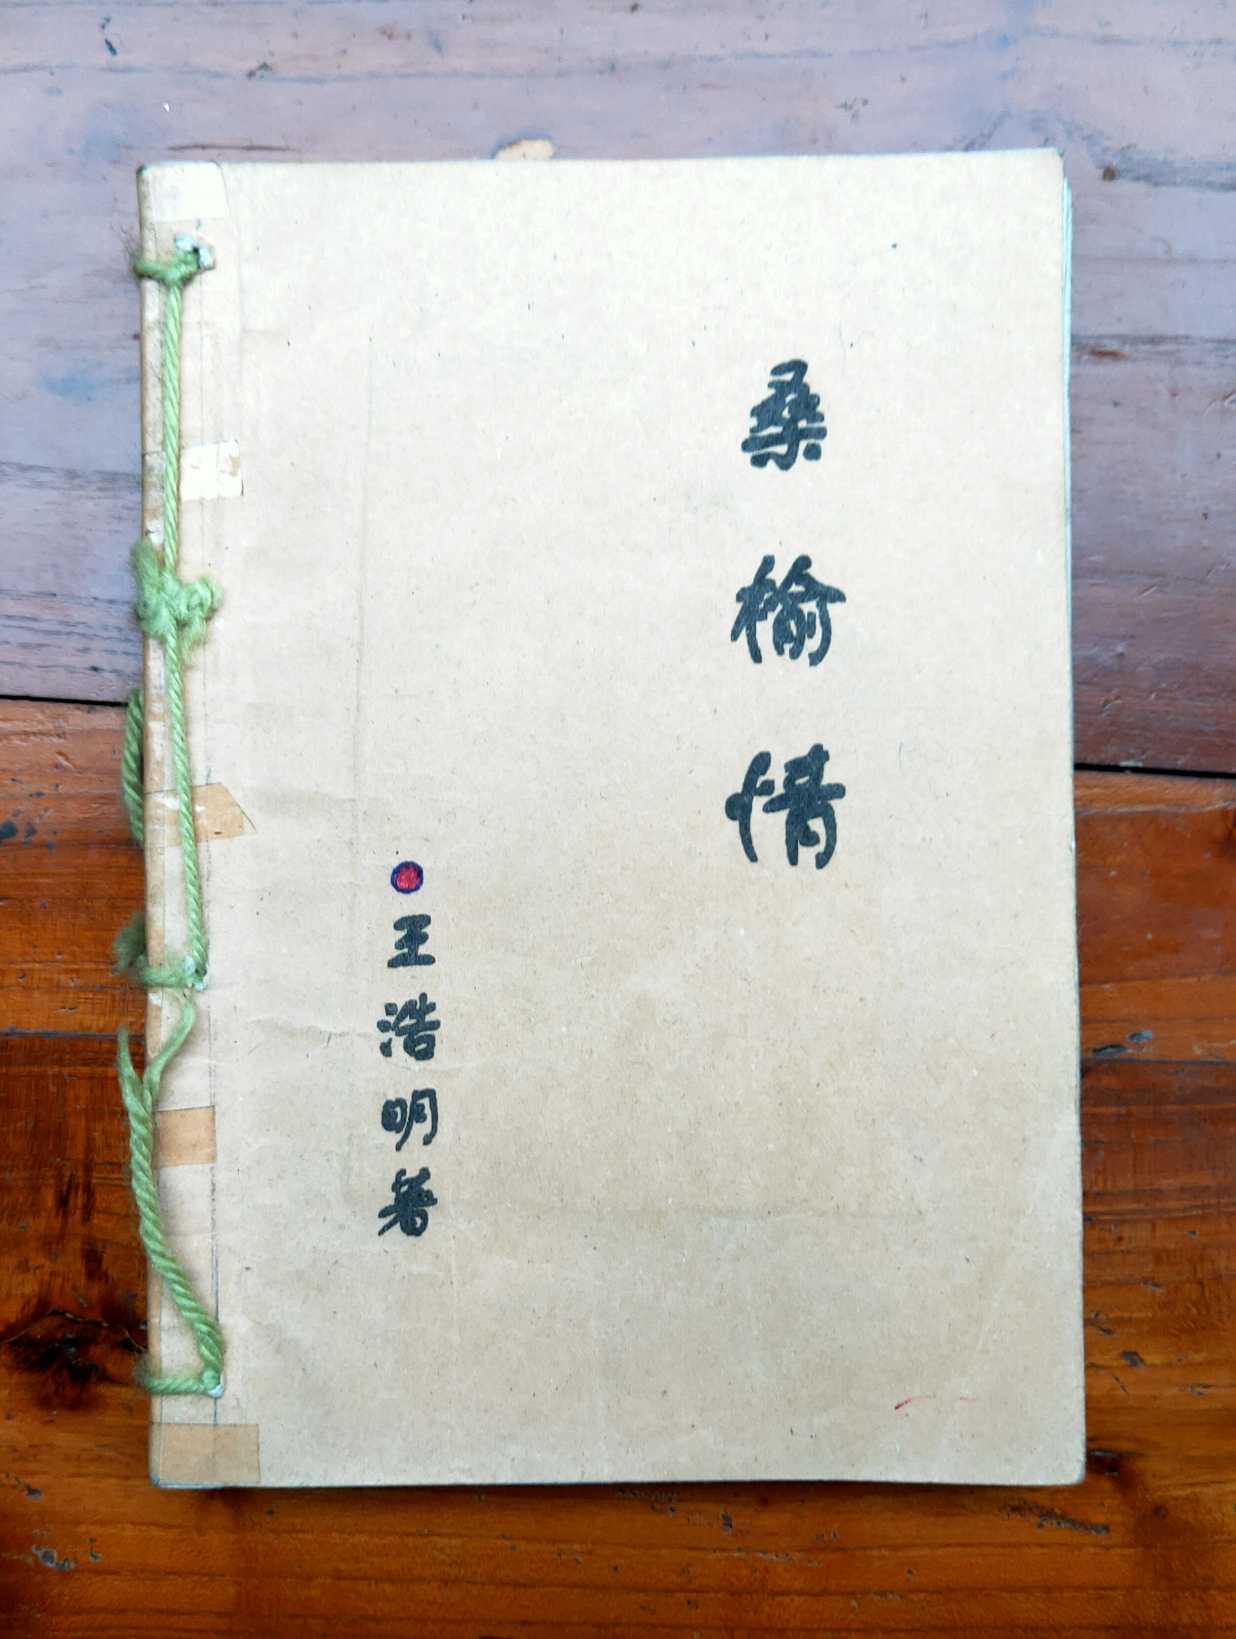 桑榆情
王浩明著